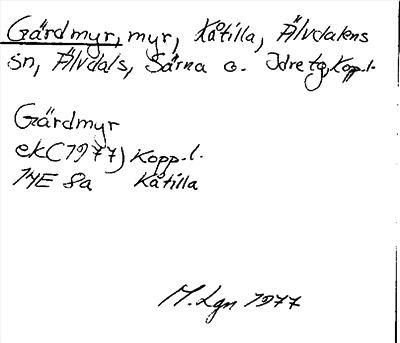 Gärdmyr, myr, Kåtilla, Älvdalens
sn, Älvdals, Särna o. Idre tg, Kopp.l.
Gärdmyr
ek(1977) Kopp.l.
14E 8a Kåtilla
M.Lgn 1977